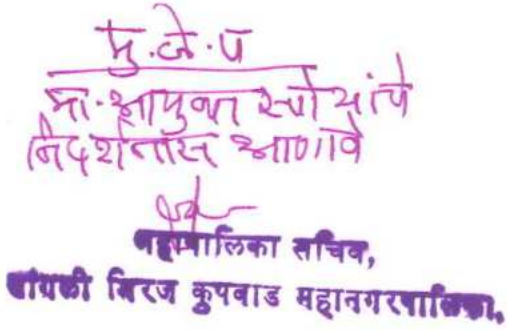 मु.ले.प
मा. आयुक्त सो यांचे
निदर्शनास आणावे
महापालिका सचिव,
सांगली मिरज कुपवाड महानगरपालिका.